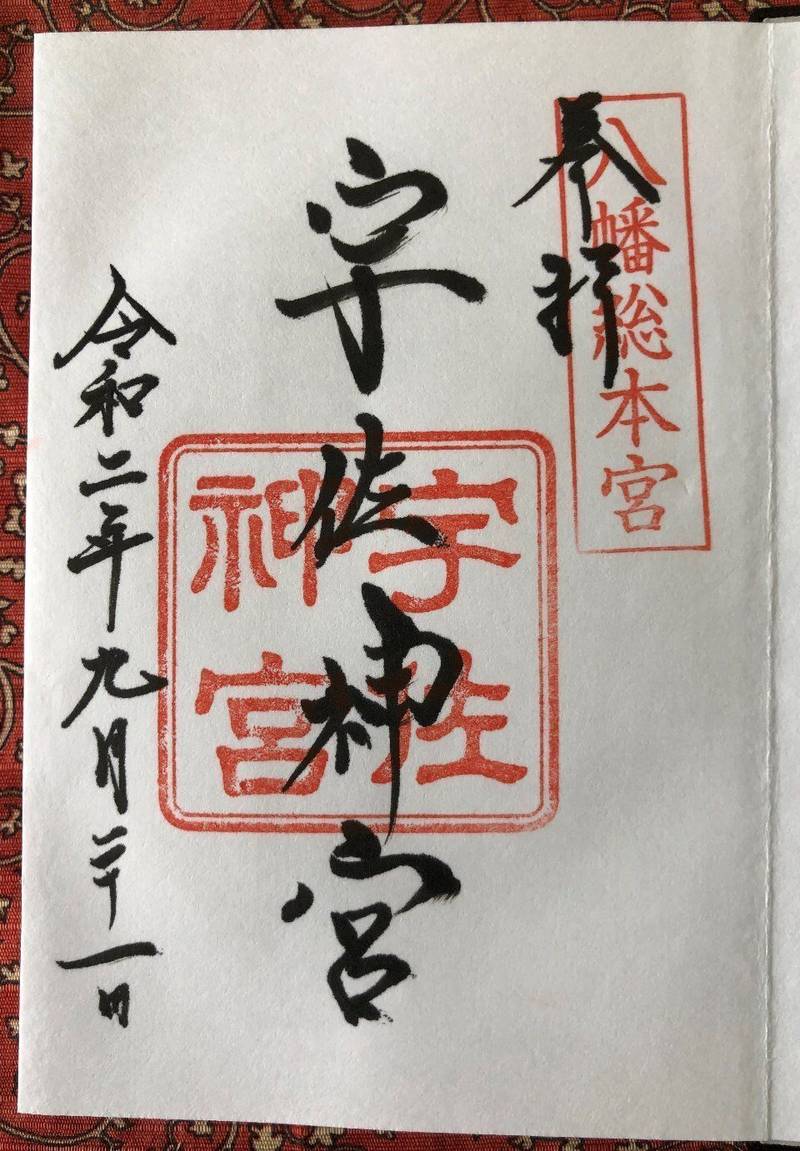 八幡総本宮
奉拝
宇佐神宮
宇佐
神宮
令和二年九月二十一日